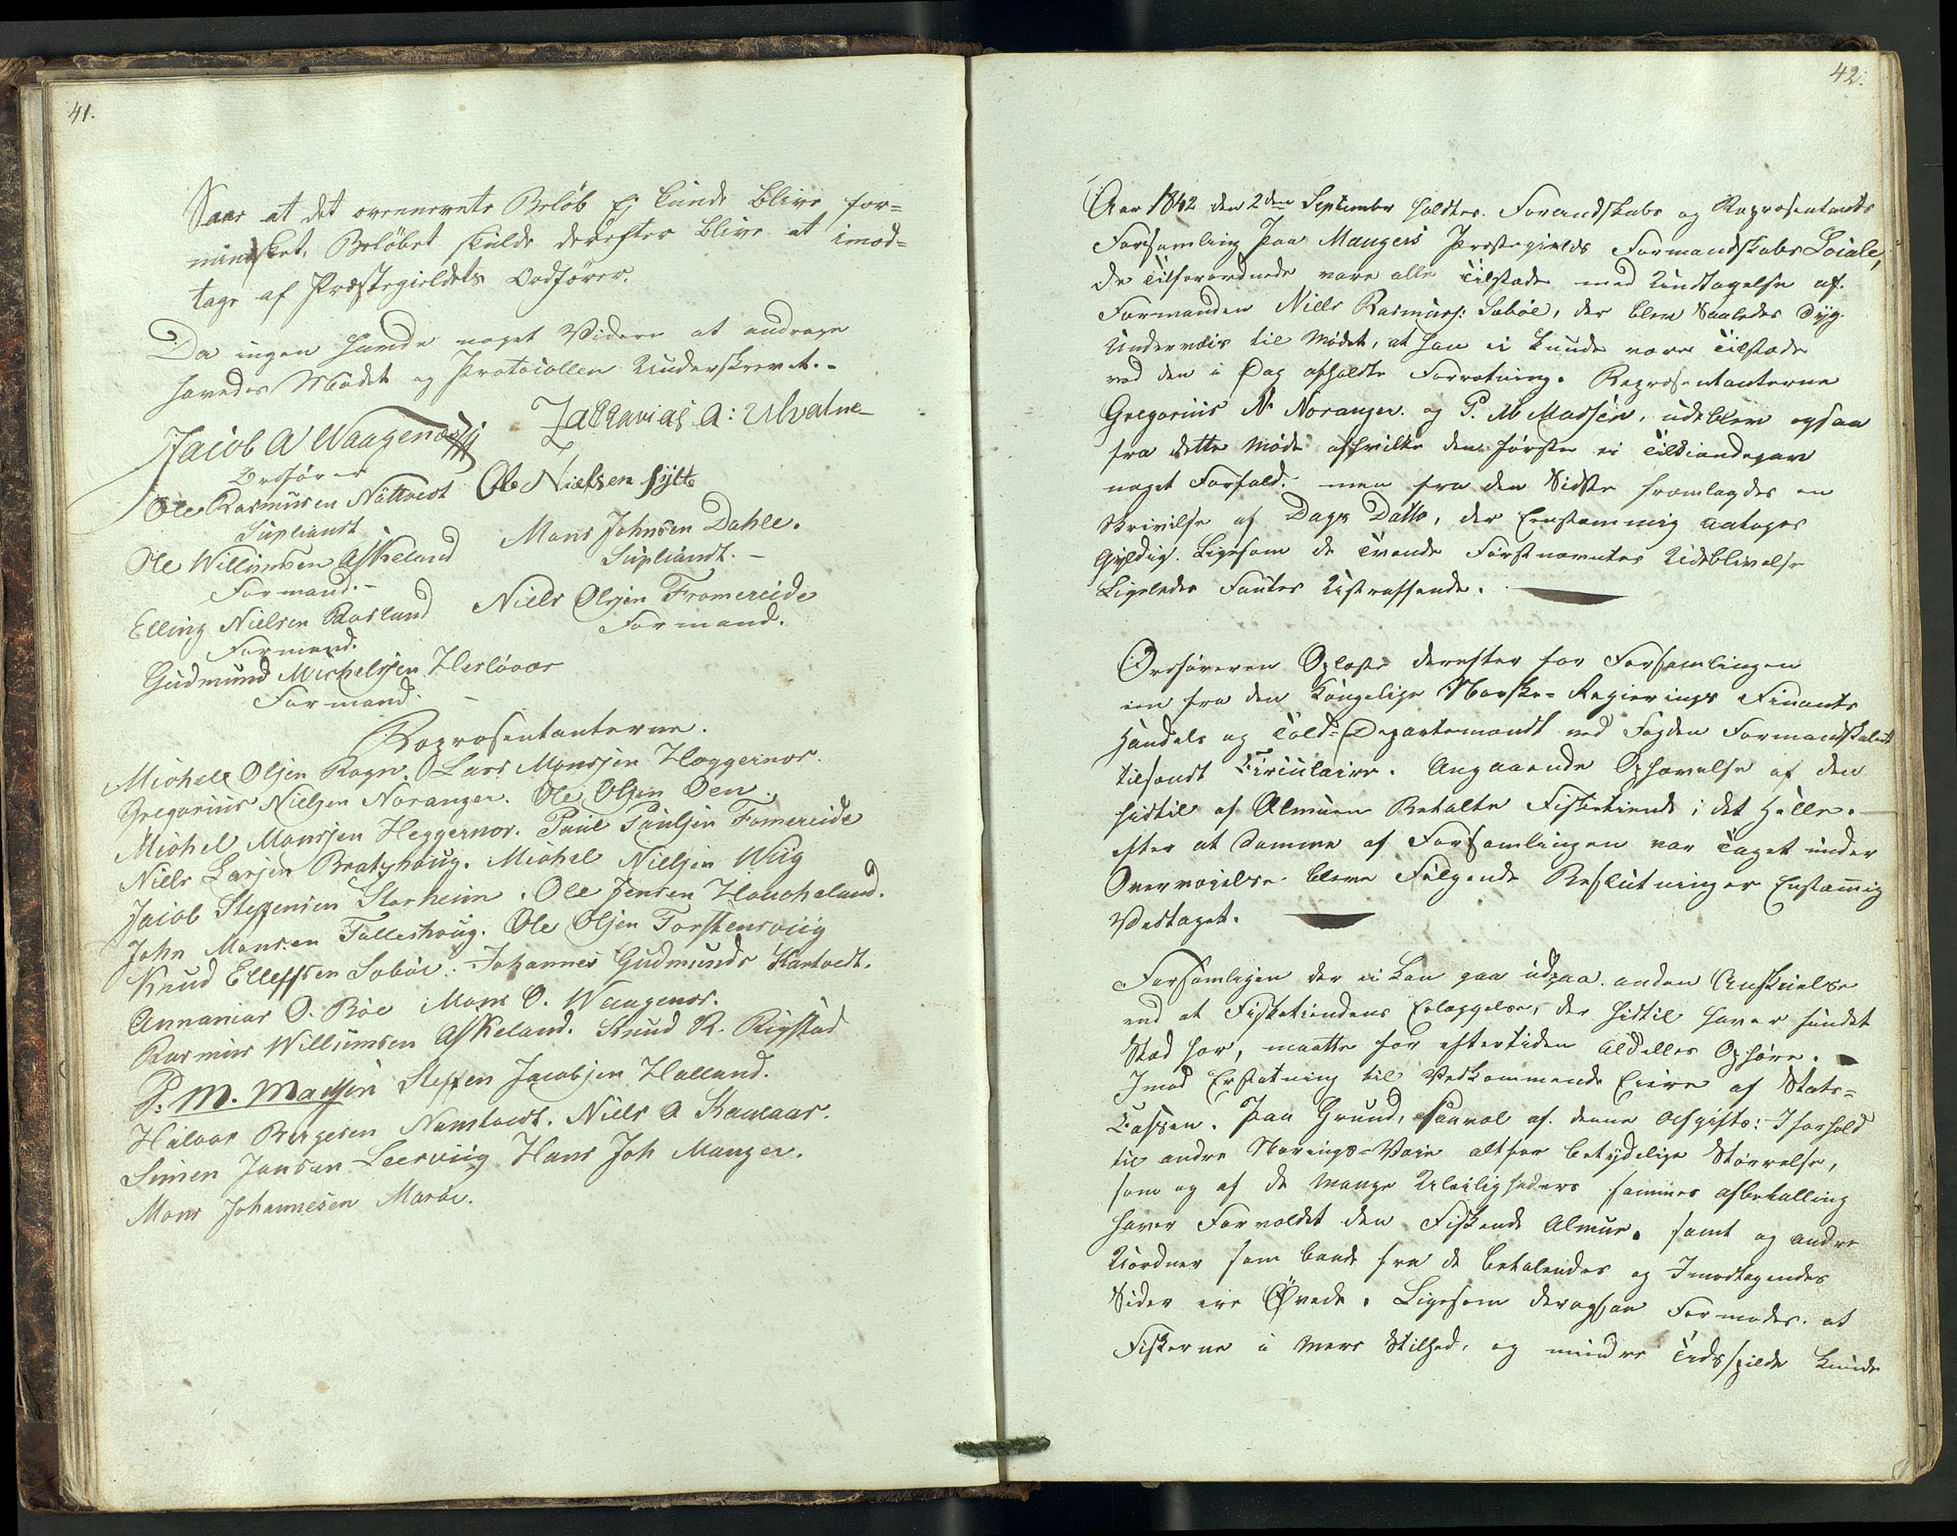 41.
Saae at det ovennevnte Beløb Ej kunde blive for=
mindsket. Beløbet skulde derefter blive at imod=
tage af Præstegieldets Ordfører.
Da ingen havde noget Videre at andrage
hævedes Mødet og Protocollen Underskrevet.-
Jacob A Waagenæs Zacharias A: Ulvatne
Ordfører
Ole Rasmusen Nøttvedt Ole Nielsen Sylte
Supliandt
Mons Johnsen Dahle.
Ole Willumsen Askeland Supliandt. -
Formand. -
Niels Olsen Fromereide
Elling Nielsen Rosland Formand.
Formand.
Gudmund Michelsen Herløvær
Formand -
Repræsentanterne.
Michel Olsen Rogn. Lars Monsen Heggernes.
Gregorius Nielsen Noranger. Ole Olsen Øen.
Michel Monsen Heggernes. Paul Paulsen Fromereide
Niels Larsen Bratshoug. Michel Nielsen Wiig
Jacob Steffensen Storheim. Ole Jensen Houcheland.
John Monsen Tolleshoug. Ole Olsen Torstensviig
Knud Elleffsen Sæbøe. Johannes Gudmunds Kartvedt.
Annanias O. Bøe Mons O. Waagenes.
Rasmus Willumsen Askeland. Knud R. Rigstad
P. M. Madsen Steffen Jacobsen Halland.
Halvor Børgesen Namtvedt. Niels A Skaalaas.
Simen Jansen Leerviig Hans Joh Manger.
Mons Johannesen Marøe.
42.
Aar 1842 den 2den September holdtes Formandskabs og Repræsentants
Forsamling paa Mangers Præstegields Formandskabs Locale,
De Tilforordnede vare alle Tilstæde med Undtagelse af
Formanden Niels Rasmuss: Sæbøe, der blev Saaledes Syg
Underveis til Mødet, at han ei kunde være Tilstæde
ved den i Dag afholdte Forretning. Repræsentanterne
Gregorius N. Noranger og P. M Madsen, udeblev ogsaa
fra dette Møde afhvilke den første ei Tilkiendegav
noget Forfald. men fra den Sidste fremlagdes en
Skrivelse af Dags Datto, der Eenstemmig antages
Gyldig. Ligesom de Tvende Førstnævntes Udeblivelse
Ligeledes fandtes Ustraffende.
Ordføreren Oplæste derefter for Forsamlingen
een fra den Kongelige Norske Regierings Finants
Handels og Told=Departemendt ved Fogden Formandskabet
tilsendt Circulaire. Angaaende Ophævelse af den
hidtil af Almuen Betalte Fisketiende i det Hele.
efter at Samme af Forsamlingen var Taget under
Overveielse bleve Følgende Beslutninger Enstemig
Vedtaget.
Forsamligen der ei kan gaa udpaa anden Anskuelse
end at Fisketiendens Erlæggelse, der hidtil haver fundet
Stæd her, maatte for eftertiden Aldelles Ophøre.
Imod Erstatning til Vedkommende Eiere af Stats=
Cassen. Paa Grund, saavel af denne Afgifts: I forhold
til andre Nærings=Veie altfor betydelige Størrelse,
som og af de Mange Uleiligheder sammes afbetalling
haver Forvoldet den Fiskende Almue. samt og andre
Uordner som baade fra de betalendes og Imodtagendes
Sider ere Øvede. Ligesom derogsaa Formodes. at
Fiskerne i Mere Stilhed, og mindre Tidsspilde kunde